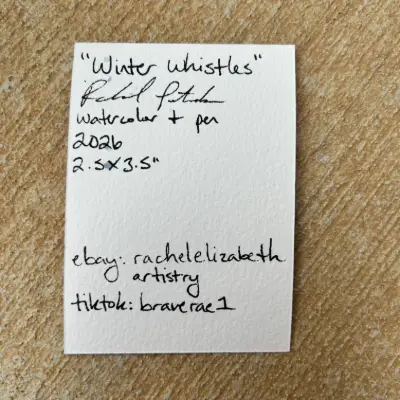 "Winter Whistles"
Rachel
watercolor + pen
2026
2.5x3.5"
ebay: rachelelizabeth
artistry
tiktok: braverae1